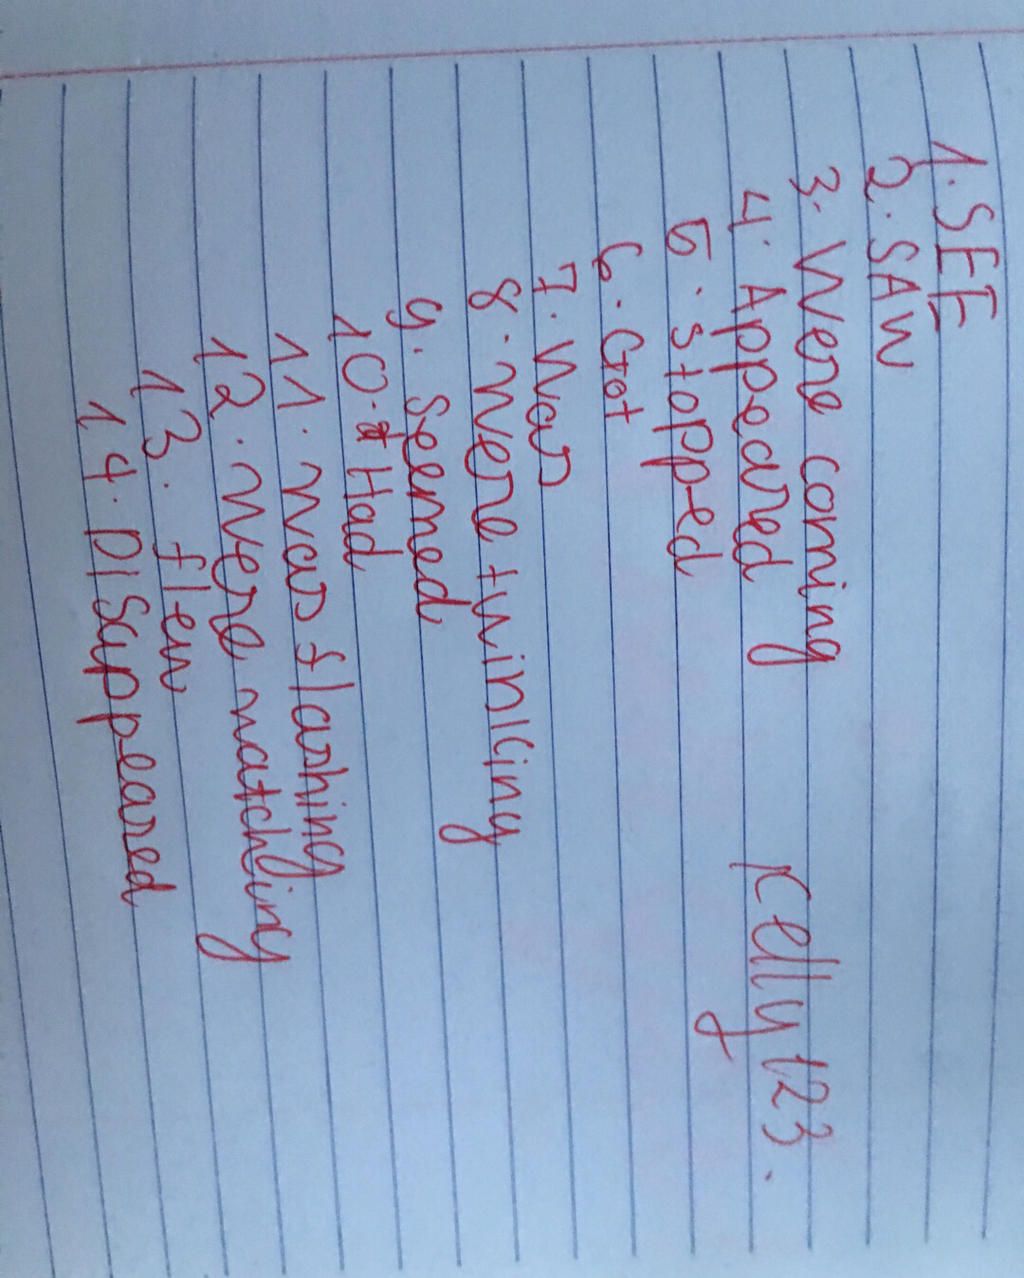 1. SEE
2. SAW
3. Were coming
4. Appeared
5. stopped
6. Got
7. Was
8. were twinicing
9. Seemed
10. Had
11. was flashing
12. were watching
13. flew
14. DISappeared
Kelly123.